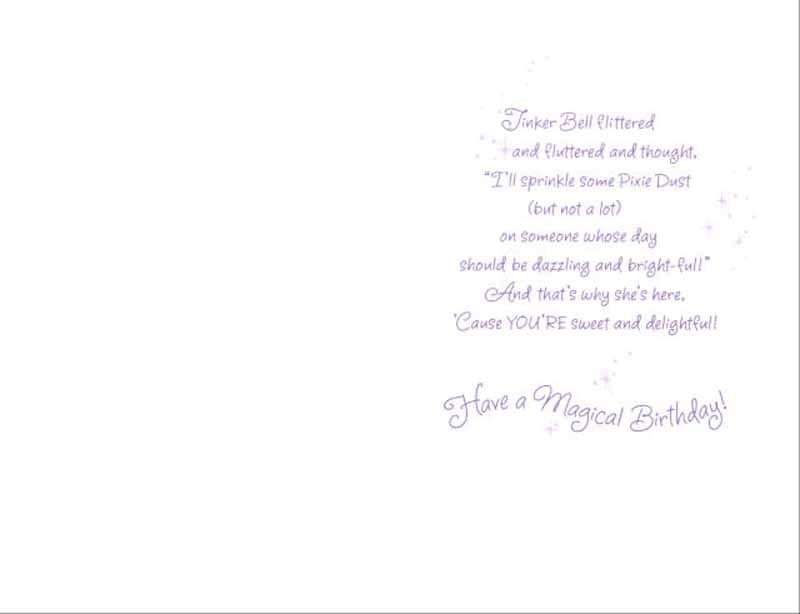 Tinker Bell flittered
and fluttered and thought,
"I'll sprinkle some Pixie Dust
(but not a lot)
on someone whose day
should be dazzling and bright-full"
And that's why she's here,
'Cause YOU'RE sweet and delightful!
Have a Magical Birthday!